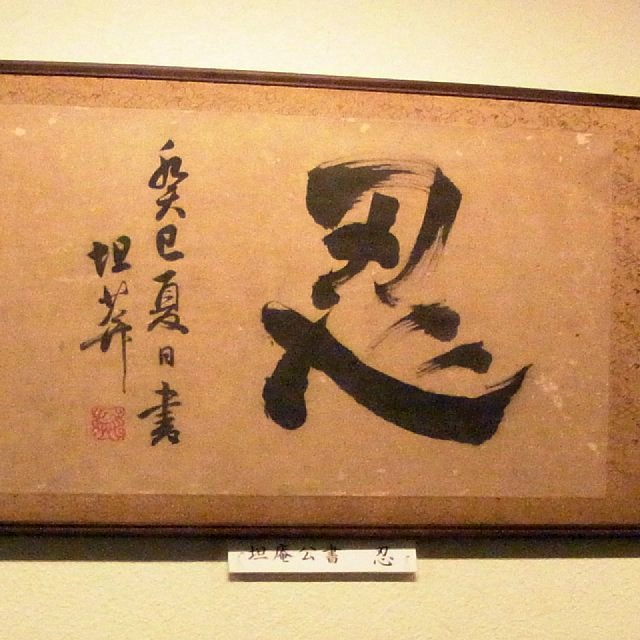 忍
癸巳夏日書
坦菴
坦庵公書 忍